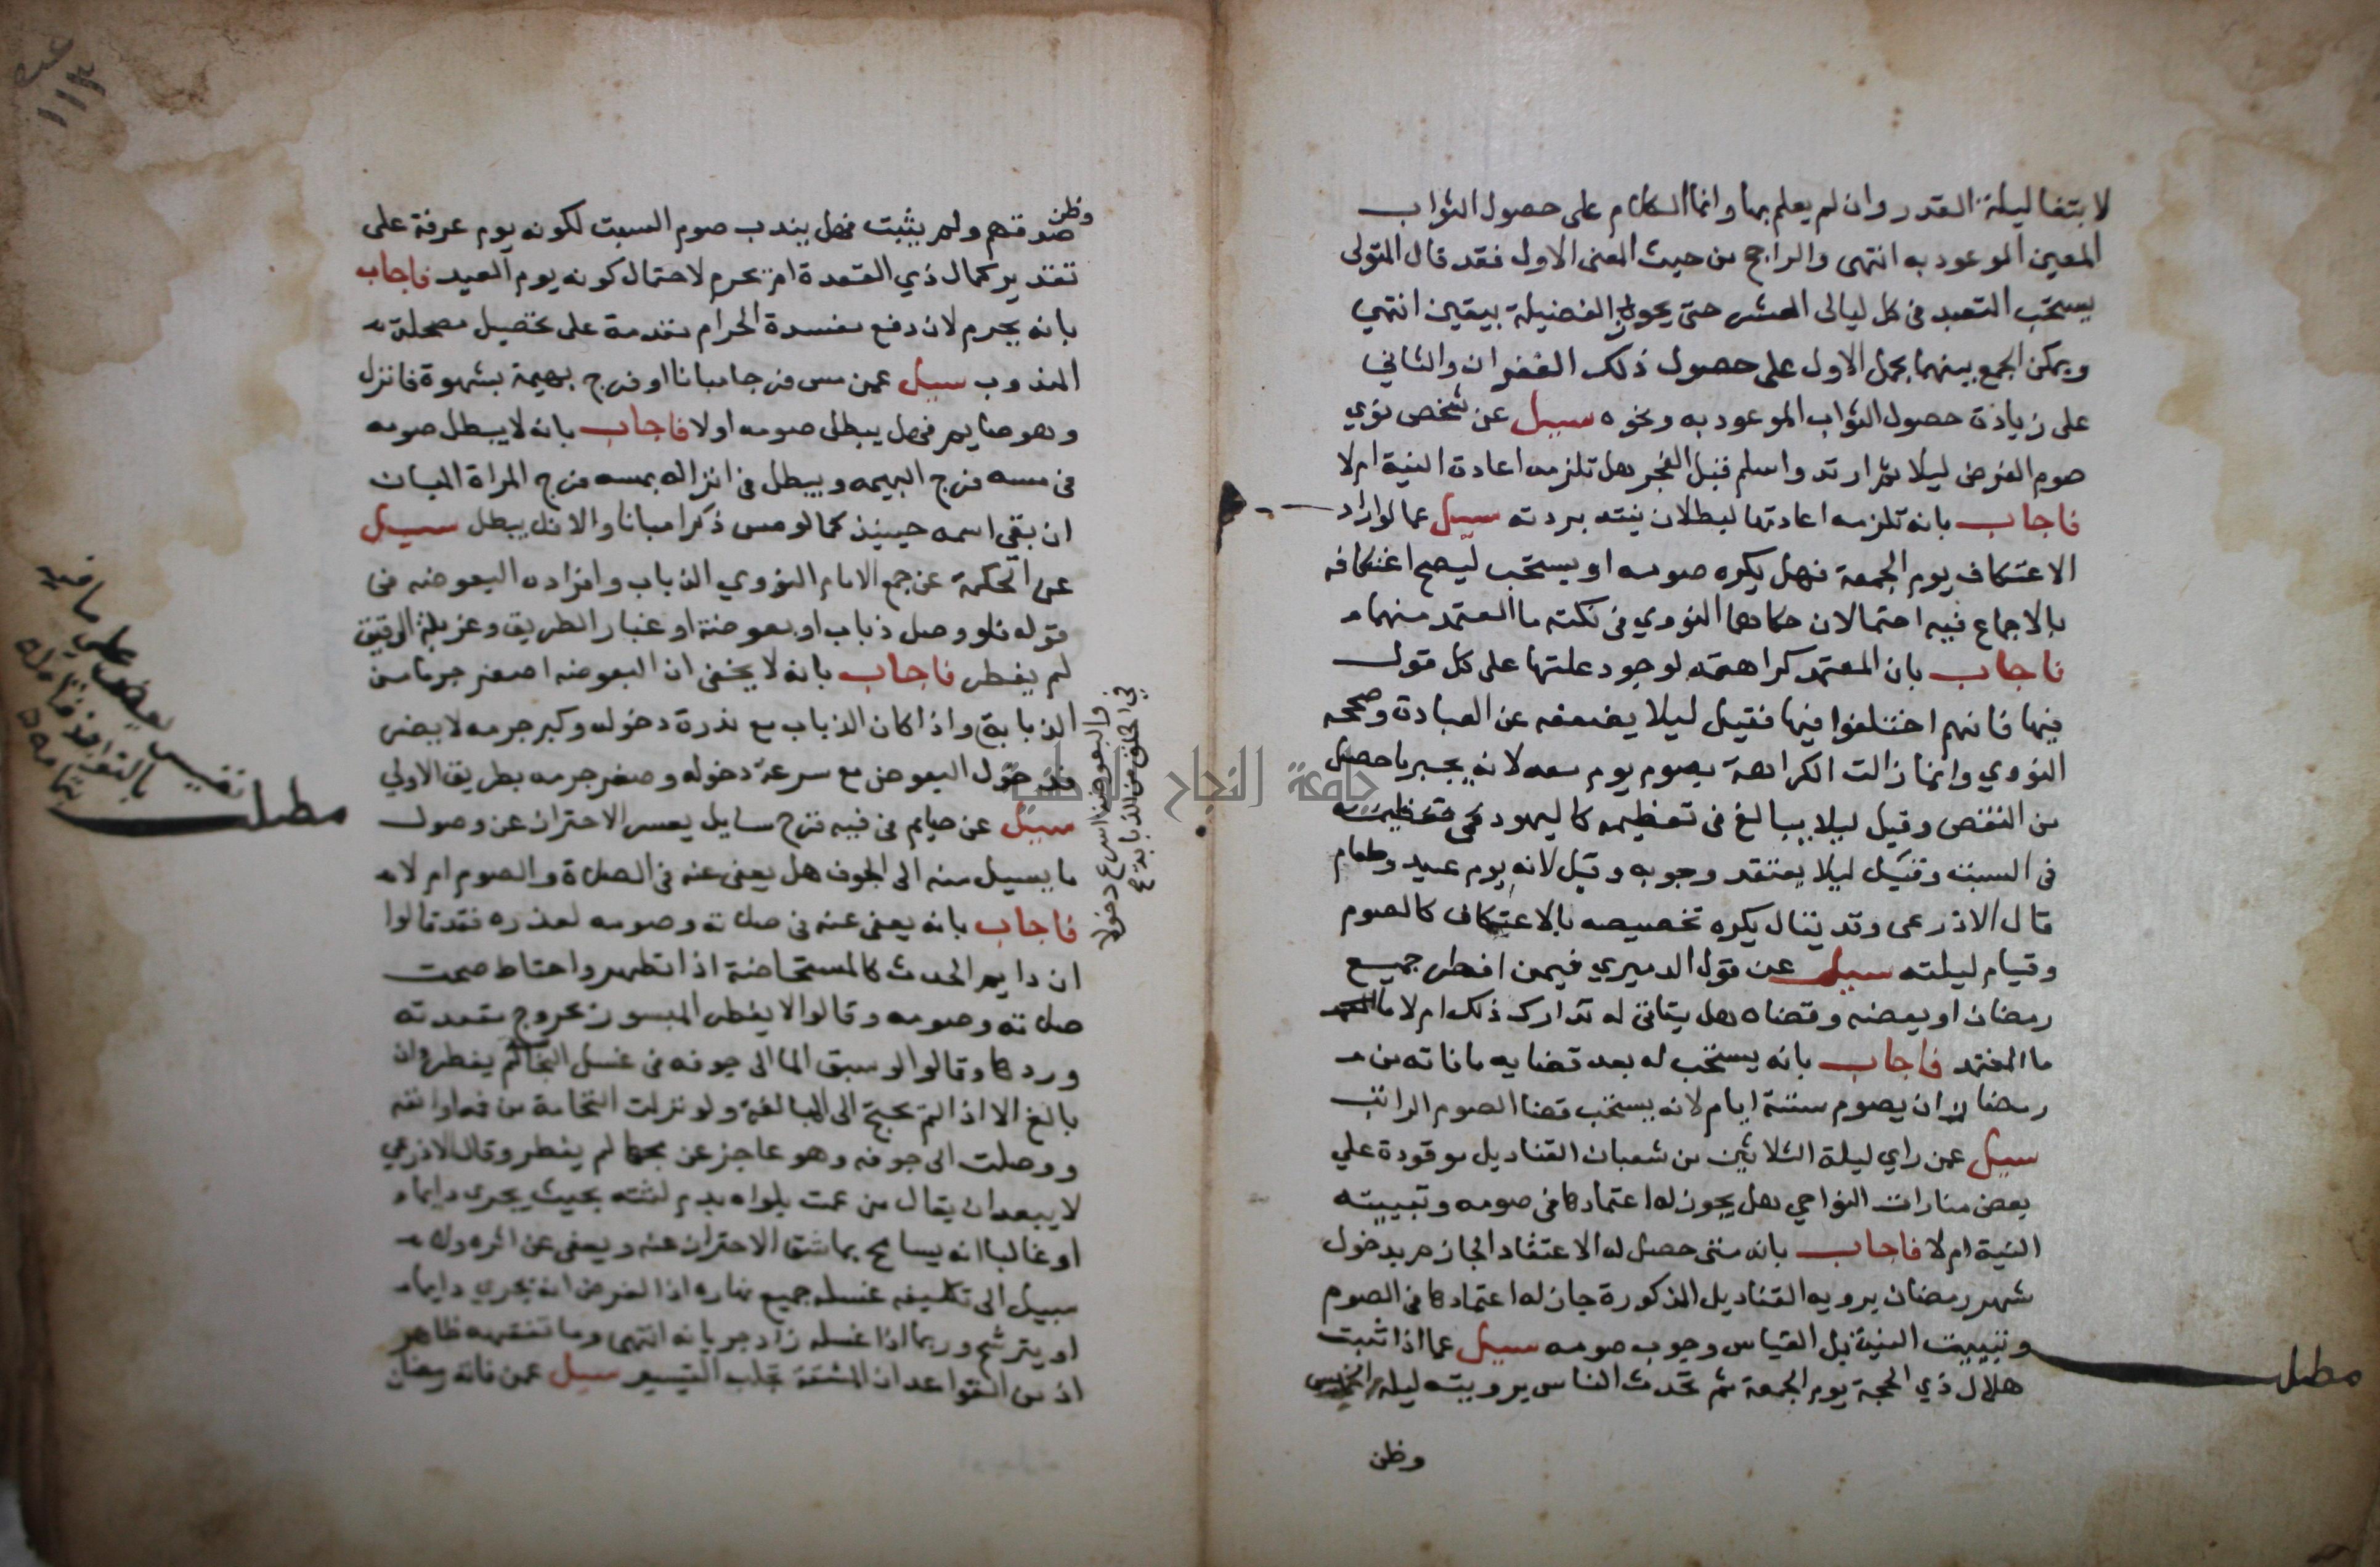 لابتغا ليلة القدر وان لم يعلم بها وانما الكلام على حصول الثواب
المعين الموعود به انتهى والراجح من حيث المعنى الاول فقد قال المتولى
يستحب التعبد فى كل ليالى العشر حتى يحوز الفضيلة بيقين انتهي
ويمكن الجمع بينهما بحمل الاول على حصول ذلك الغفران والثاني
على زيادة حصول الثواب الموعود به ونحوه سيل عن شخص نوي
صوم الفرض ليلا ثم ارتد واسلم قبل الفجر هل تلزمه اعادة النية ام لا
فاجاب بانه تلزمه اعادتها لبطلان نيته بردته سيل عما لو اراد
الاعتكاف يوم الجمعة فهل يكره صومه او يستحب ليصح اعتكافه
بالاجماع فيه احتمالان حكاهما النووي فى نكته ما المعتمد منهما
فاجاب بان المعتمد كراهته لوجود علتها على كل قول
فيها فانهم اختلفوا فيها فقيل ليلا يضعفه عن العبادة وصححه
النووي وانما زالت الكراهة بصوم يوم معه لانه يجبر ما حصل
من النقص وقيل ليلا يبالغ فى تعظيمه كاليهود
فى السبت وقيل ليلا يعتقد وجوبه وقيل لانه يوم عيد وطعام
قال الاذرعى وقد يقال يكره تخصيصه بالاعتكاف كالصوم
وقيام ليلته سيل عن قول الدميري فيمن افطر جميع
رمضان او بعضه وقضاه هل يتاتى له تدارك ذلك ام لا
ما المعتمد فاجاب بانه يستحب له بعد قضايه ما فاته من
رمضان ان يصوم ستة ايام لانه يستحب قضا الصوم الراتب
سيل عمن راي ليلة الثلاثين من شعبان القناديل موقودة علي
بعض منارات النواحي هل يجوز له اعتمادها فى صومه وتبييته
النية ام لا فاجاب بانه متى حصل له الاعتقاد الجازم بدخول
شهر رمضان برويه القناديل المذكورة جاز له اعتمادها فى الصوم
وتبييت النية بل القياس وجوب صومه سيل عما اذا ثبت
هلال ذي الحجة يوم الجمعة ثم تحدث الناس برويته ليلة الخميس
مطلب
وظن
وظن
صدقهم ولم يثبت فهل يندب صوم السبت لكونه يوم عرفة على
تقدير كمال ذي القعدة ام يحرم لاحتمال كونه يوم العيد فاجاب
بانه يحرم لان دفع مفسدة الحرام مقدمة على تحصيل مصلحة
المندوب سيل عمن مس فرجا مبانا او فرج بهيمة بشهوة فانزل
وهو صايم فهل يبطل صومه اولا فاجاب بانه لا يبطل صومه
فى مسه فرج البهيمه ويبطل فى انزاله بمسه فرج المراة المبان
ان بقى اسمه حينيذ كما لو مس ذكرا مبانا والا فلا يبطل سيل
عن الحكمة عن جمع الامام النووي الذباب وافراده البعوضه فى
قوله فلو وصل ذباب او بعوضة او غبار الطريق وغربلة الدقيق
لم يفطر فاجاب بانه لا يخفى ان البعوضه اصغر جرما من
الذبابة واذا كان الذباب مع ندرة دخوله وكبر جرمه لا يضر
فدخول البعوض مع سرعة دخوله وصغر جرمه بطريق الاولي
سيل عن صايم فى فيه قرح سايل يعسر الاحتراز عن وصول
ما يسيل منه الى الجوف هل يعفى عنه فى الصلاة والصوم ام لا
فاجاب بانه يعفى عنه فى صلاته وصومه لعذره فقد قالوا
ان دايم الحدث كالمستحاضة اذا تطهر واحتاط صحت
صلاته وصومه وقالوا لا يفطر المبسور بخروج مقعدته
وردها وقالوا لو سبق الما الى جوفه فى غسل لم يفطر وان
بالغ الا اذا لم يحتج الى المبالغة ولو نزلت النخامة من فمه او انفه
ووصلت الى جوفه وهو عاجز عن مجها لم يفطر وقال الاذرعي
لا يبعد ان يقال من عمت بلواه بدم لثته بحيث يجري دايما
او غالبا انه يسامح بما شق الاحتراز عنه ويعفى عن اثره ولا
سبيل الى تكليفه غسله جميع نهاره اذ الفرض انه يجري دايما
او يترشح وربما اذا غسله زاد جريانه انتهى وما تفقهه ظاهر
اذ من القواعد ان المشقة تجلب التيسير سيل عمن فاته رمضان
والبعوضة اسرع دخولا
في الحلق من الذبابة صح
مطلب
نفيس
١١٣
جامعة النجاح الوطنية